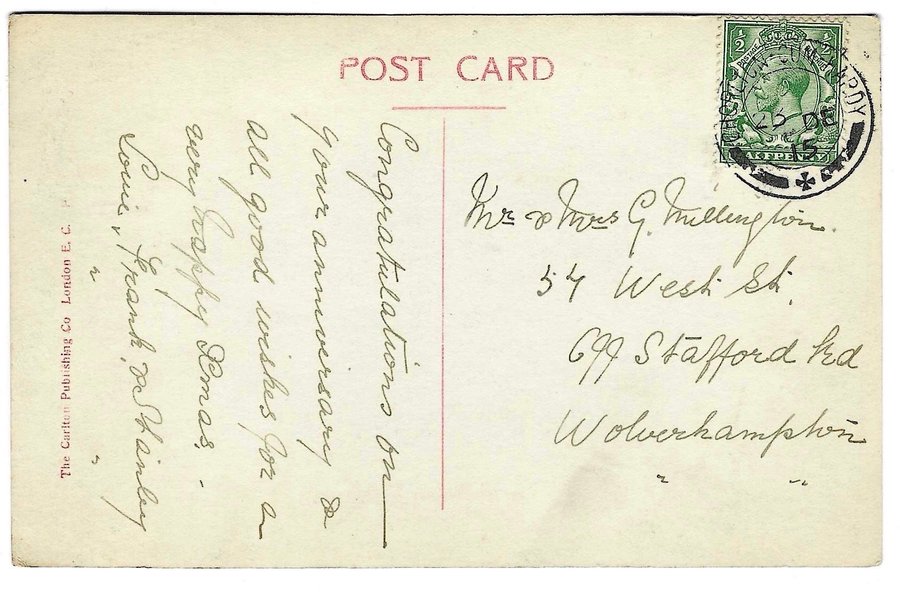 POST CARD
Congratulations on
your anniversary &
all good wishes for a
very happy Xmas.
Love, Frank & Stanley
The Carlton Publishing Co London E. C.
Mr & Mrs G. Millington.
57 West St.
Off Stafford Rd
Wolverhampton
½ ½
POSTAGE
HALFPENNY
CHORLTON-CUM-HARDY
DE
15